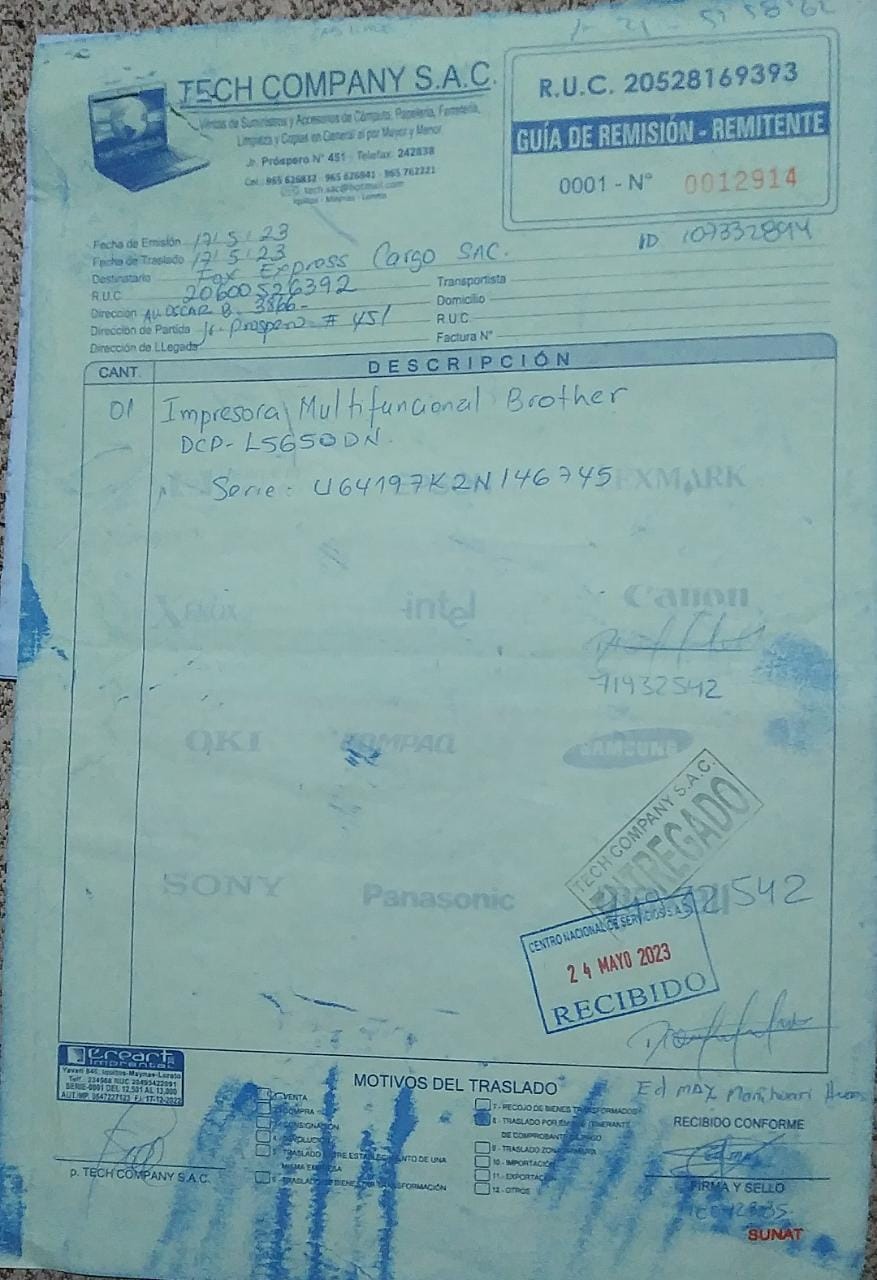 TECH COMPANY S.A.C.
Ventas de Suministros y Accesorios de Cómputo, Papelería, Ferretería,
Limpieza y Copias en General al por Mayor y Menor
Jr. Próspero N° 451 - Telefax: 242838
Cel.: 965 626832 - 965 626841 - 965 762221
tech.sac@hotmail.com
Iquitos - Maynas - Loreto
R.U.C. 20528169393
GUÍA DE REMISIÓN - REMITENTE
0001 - N° 0012914
ID 1073328914
Fecha de Emisión 17/5/23
Fecha de Traslado 17/5/23
Destinatario Fox Express Cargo SAC.
R.U.C. 20600526392
Transportista
Dirección AV. OSCAR B. 3866-
Domicilio
Dirección de Partida Jr. Prospero # 451
R.U.C.
Dirección de LLegada
Factura N°
CANT. DESCRIPCIÓN
01 Impresora Multifuncional Brother
DCP-L5650DN.
Serie: U64197K2N146745
LEXMARK
XEROX intel Canon
71932542
OKI COMPAQ SAMSUNG
TECH COMPANY S.A.C.
ENTREGADO
SONY Panasonic
71932542
CENTRO NACIONAL DE SERVICIOS S.A.C.
24 MAYO 2023
RECIBIDO
Creart
Imprenta
Yavari 846, Iquitos-Maynas-Loreto
SERIE-0001 DEL 12,501 AL 13,000
MOTIVOS DEL TRASLADO
Ed max
1 - VENTA
2 - COMPRA
3 - CONSIGNACIÓN
4 - DEVOLUCIÓN
5 - TRASLADO ENTRE ESTABLECIMIENTO DE UNA
MISMA EMPRESA
6 - TRASLADO DE BIENES PARA TRANSFORMACIÓN
7 - RECOJO DE BIENES TRANSFORMADOS
8 - TRASLADO POR EMISOR ITINERANTE
DE COMPROBANTE DE PAGO
9 - TRASLADO ZONA PRIMARIA
10 - IMPORTACIÓN
11 - EXPORTACIÓN
12 - OTROS
RECIBIDO CONFORME
p. TECH COMPANY S.A.C.
FIRMA Y SELLO
SUNAT